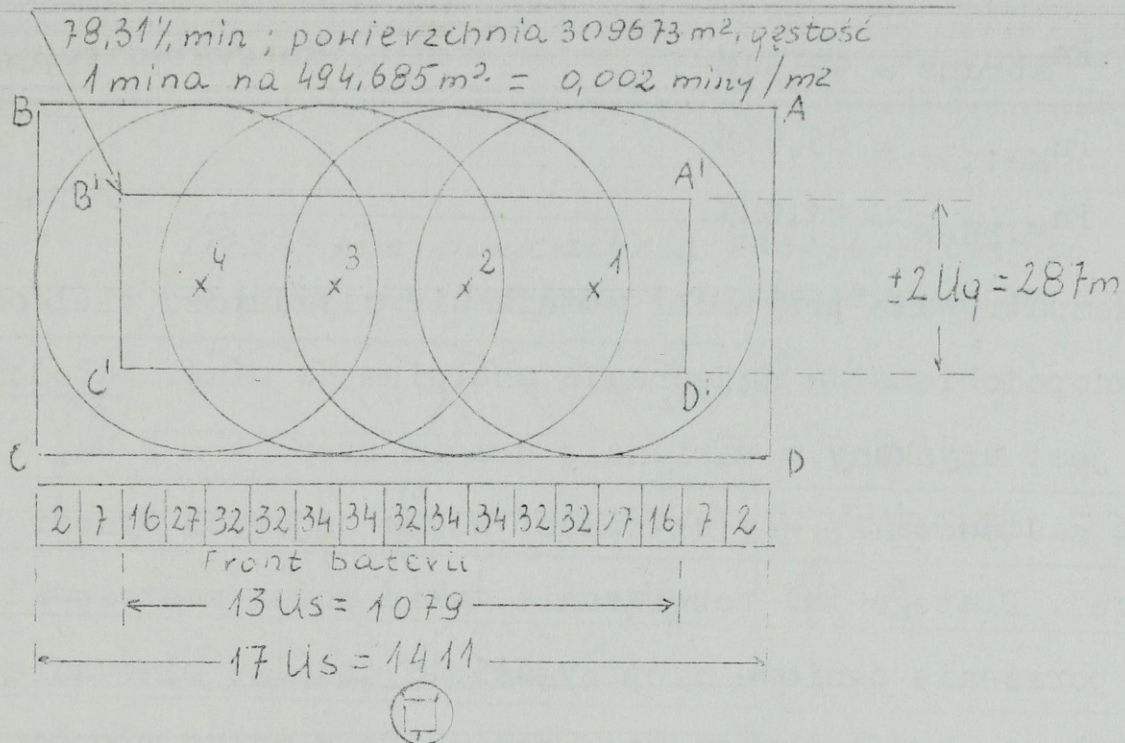 78,31% min ; powierzchnia 309673 m², gęstość
1 mina na 494,685 m². = 0,002 miny/m2
B A
B' A'
4 3 2 1
±2 Ug = 287m
C' D'
C D
2 7 16 27 32 32 34 34 32 34 34 32 32 27 16 7 2
Front baterii
13 Us = 1079
17 Us = 1411